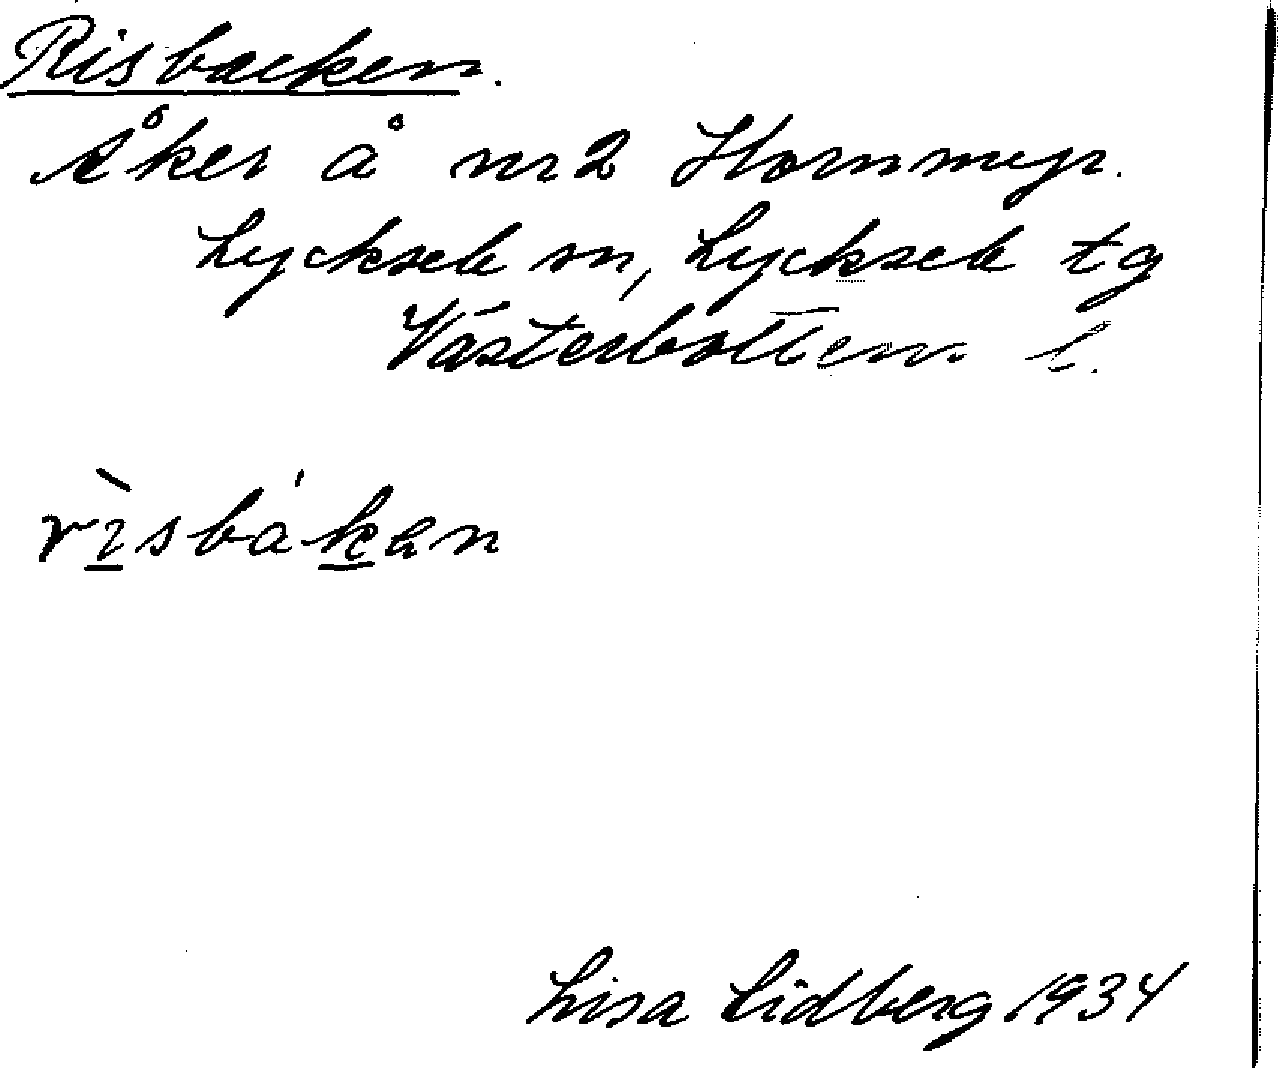 Risbacken.
Åker å nr 2 Hornmyr.
Lycksele sn, Lycksele tg
Västerbottens l.
rìsbákan
Lisa Lidberg 1934